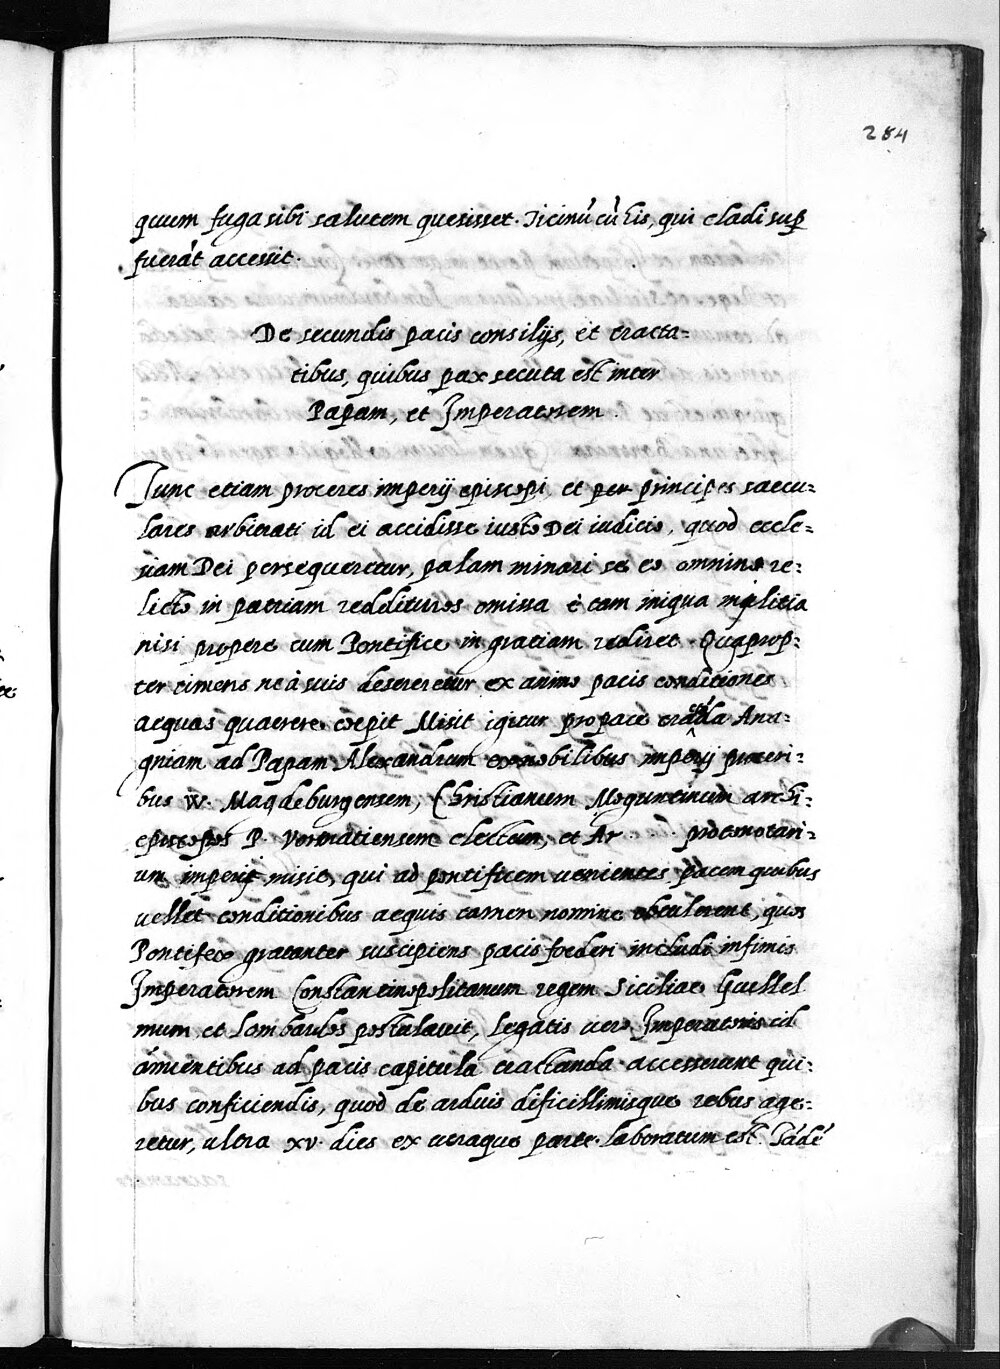 284
quum fuga sibi salutem quesisset. Ticinũ cũ his, qui cladi sup
fuerãt accessit.
De secundis pacis consilijs, et tracta=
tibus, quibus pax secuta est inter
Papam, et Imperatorem.
Tunc etiam proceres imperij episcopi, et per principes saecu=
lares arbitrati id ei accidisse iusto Dei iudicio, quod eccle=
siam Dei persequeretur, palam minari se eo omnino re=
licto in patriam reddituros omissa è tam iniqua militia
nisi propere cum Pontifice in gratiam rediret. Quaprop=
ter timens ne à suis desereretur ex animo pacis conditiones
aequas quaerere coepit Misit igitur pro pace Ana=
gniam ad Papam Alexandrum ex nobilibus imperij proceri=
bus W. Magdeburgensem, Christianum Moguntinum archi=
episcopos P. Vormatiensem electum, et Ar .... protonotari=
um imperij misit, qui ad pontificem uenientes pacem quibus
uellet conditionibus aequis tamen nomine obtulerent, quos
Pontifex gratanter suscipiens pacis foederi includi infimis
Imperatorem Constantinopolitanum regem Siciliae Guellel
mum et Lombardos postulauit, Legatis uero Imperatoris id
ãnuentibus ad pacis capitula tractanda accesserunt qui=
bus conficiendis, quod de arduis dificillimisque rebus age=
retur, ultra xv. dies ex utraque parte laboratum est. Tãdẽ